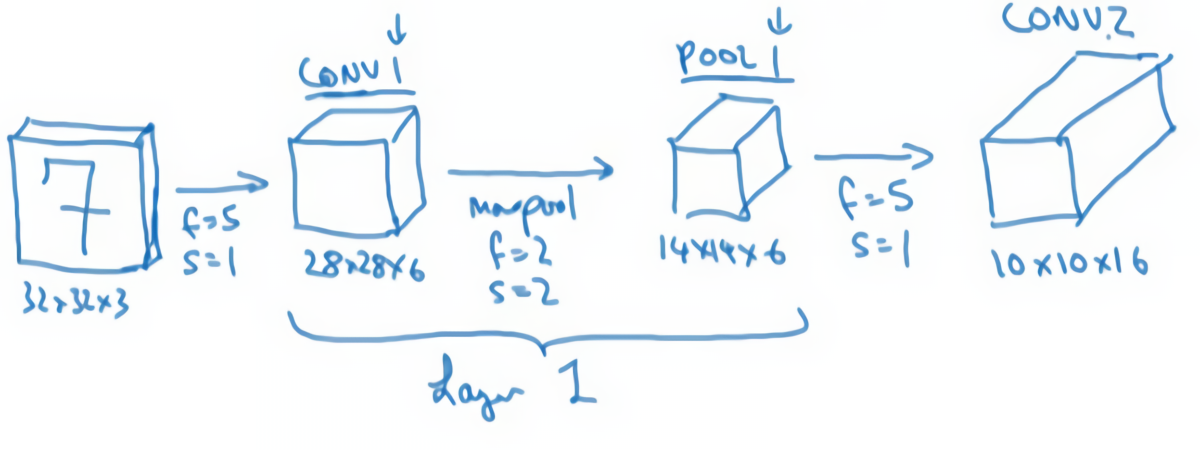 7
32x32x3
f=5
s=1
CONV1
28x28x6
maxpool
f=2
s=2
POOL1
14x14x6
f=5
s=1
CONV2
10x10x16
Layer 1